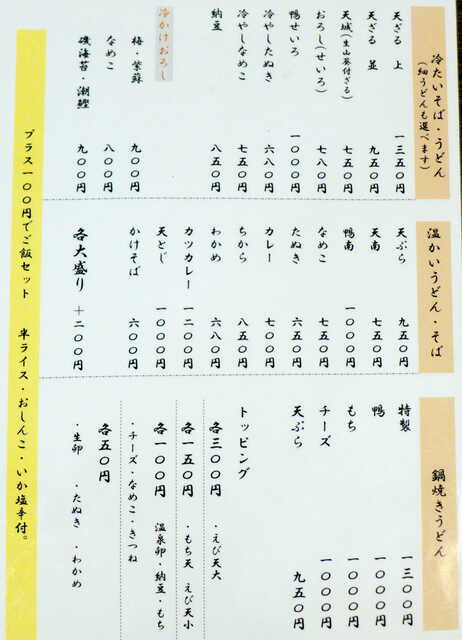 冷たいそば・うどん
(細うどんも選べます)
天ざる 上 一三五〇円
天ざる 並 九五〇円
天城(生山葵付ざる) 七五〇円
おろし(せいろ) 七八〇円
鴨せいろ 一〇〇〇円
冷やしたぬき 六八〇円
冷やしなめこ 七五〇円
納豆 八五〇円
冷かけおろし
梅・紫蘇 九〇〇円
なめこ 八〇〇円
磯海苔・潮鰹 九〇〇円
温かいうどん・そば
天ぷら 九五〇円
天南 七五〇円
鴨南 一〇〇〇円
なめこ 七五〇円
たぬき 六五〇円
カレー 七〇〇円
ちから 八五〇円
わかめ 六八〇円
カツカレー 一二〇〇円
天とじ 一〇〇〇円
かけそば 六〇〇円
各大盛り +二〇〇円
鍋焼きうどん
特製 一三〇〇円
鴨 一〇〇〇円
もち 一〇〇〇円
チーズ 一〇〇〇円
天ぷら 九五〇円
トッピング
各三〇〇円 ・えび天大
各一五〇円 ・もち天 えび天小
各一〇〇円 温泉卵・納豆・もち
・チーズ・なめこ・きつね
各五〇円
・生卵 ・たぬき ・わかめ
プラス一〇〇円でご飯セット 半ライス・おしんこ・いか塩辛付。